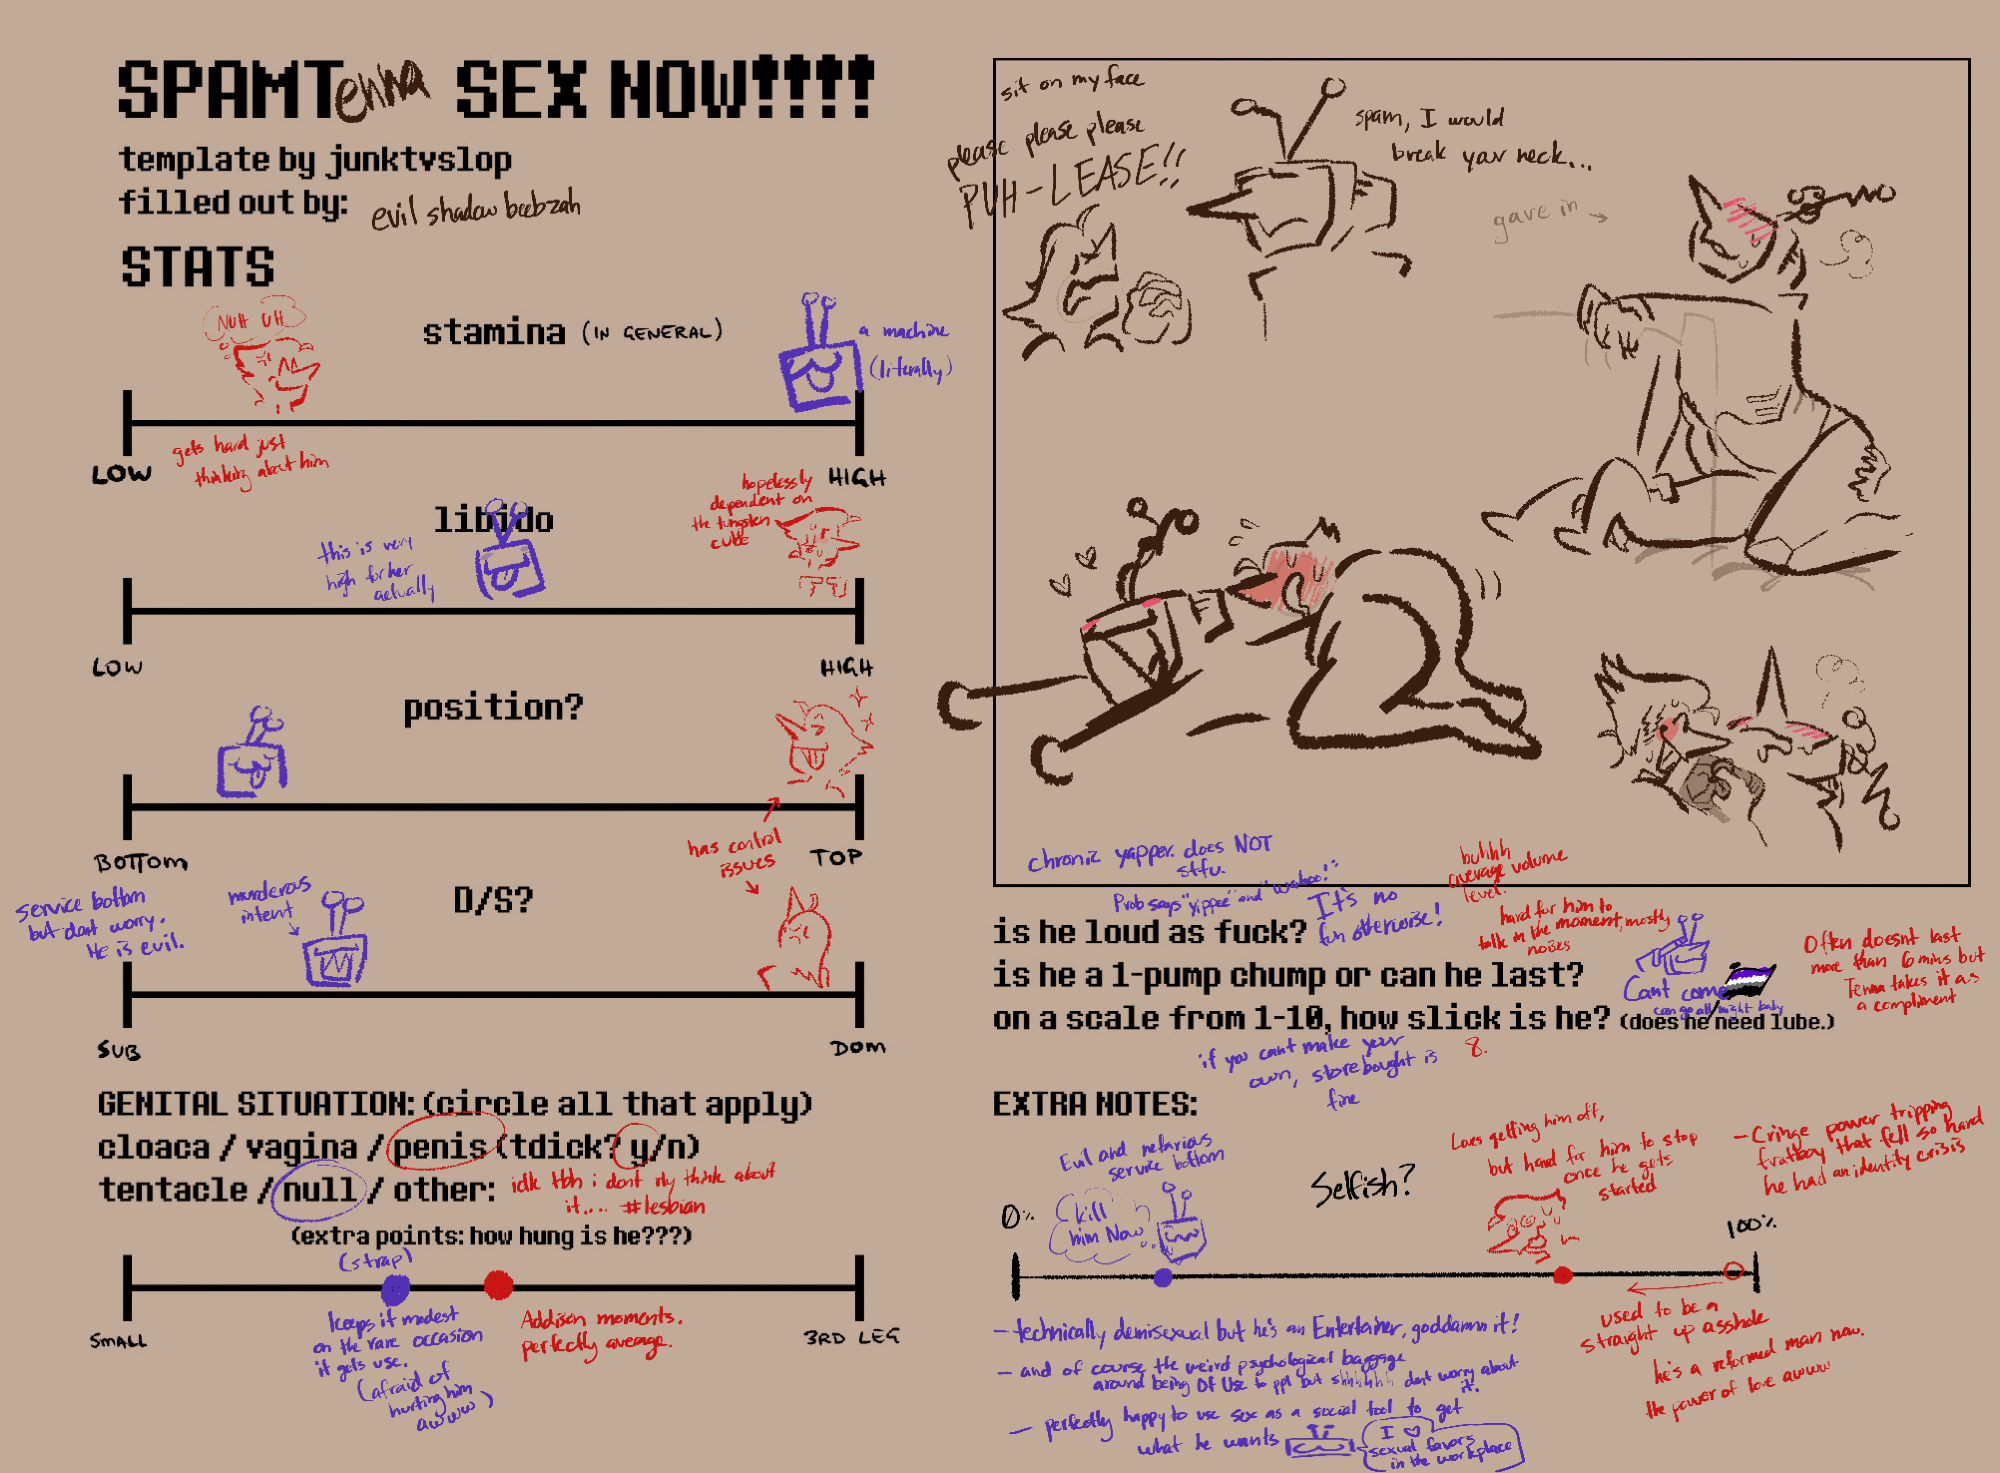 SPAMTenna SEX NOW!!!!
template by junktvslop
filled out by: evil shadow beebzah
STATS
NUH UH
stamina (IN GENERAL)
a machine
(literally)
LOW
HIGH
gets hard just
thinking about him
libido
this is very
high for her
actually
hopelessly
dependent on
the tungsten
cube
LOW
HIGH
position?
BOTTOM
TOP
has control
issues
D/S?
service bottom
but dont worry.
He is evil.
murderous
intent
SUB
DOM
GENITAL SITUATION: (circle all that apply)
cloaca / vagina / penis (tdick? y/n)
tentacle / null / other: idk tbh i dont rly think about
it.... #lesbian
(extra points: how hung is he???)
(strap)
SMALL
3RD LEG
keeps it modest
on the rare occasion
it gets use.
(afraid of
hurting him
awww)
Addison moments.
perfectly average.
sit on my face
please please please
PUH-LEASE!!
spam, I would
break your neck...
gave in
NO
chronic yapper. does NOT
stfu.
Prob says "yippee" and "wahoo!"
It's no
fun otherwise!
buhhh
average volume
level.
hard for him to
talk in the moment, mostly
noises
is he loud as fuck?
is he a 1-pump chump or can he last?
Cant come
can go all night baby
Often doesnt last
more than 6 mins but
Tenna takes it as
a compliment
on a scale from 1-10, how slick is he? (does he need lube.)
if you cant make your
own, storebought is
fine
8.
EXTRA NOTES:
Evil and nefarious
service bottom
kill
him Now
Selfish?
Loves getting him off,
but hard for him to stop
once he gets
started
- Cringe power tripping
fratboy that fell so hard
he had an identity crisis
0%
100%
used to be a
straight up asshole
he's a reformed man now.
the power of love awww
- technically demisexual but he's an Entertainer, goddamn it!
- and of course the weird psychological baggage
around being Of Use to ppl but shhhhhh dont worry about
it.
- perfectly happy to use sex as a social tool to get
what he wants
I ♡
sexual favors
in the workplace